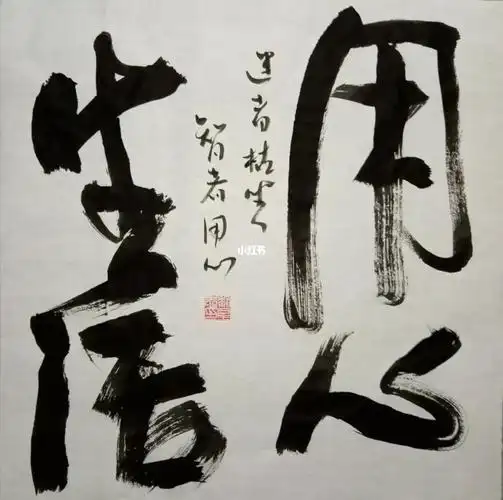 用心
者枯坐
智者用心
生活
小红书